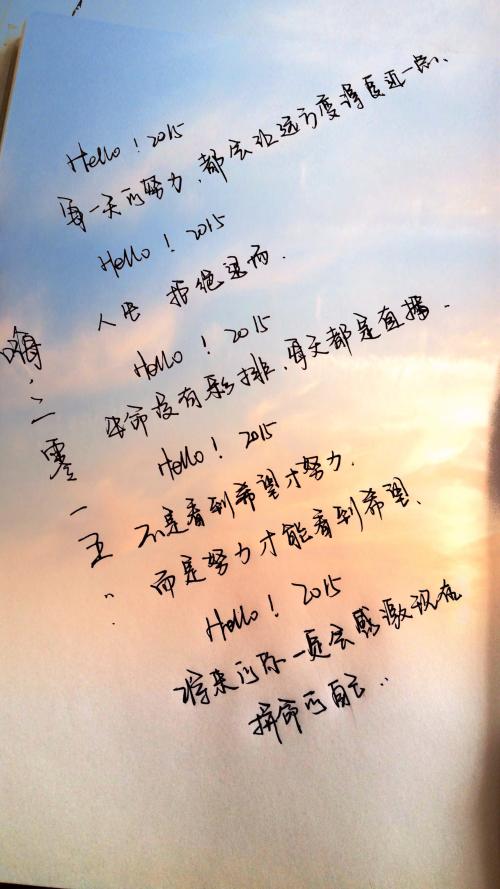 Hello ! 2015
每一天的努力,都会让远方变得更近一点、
Hello ! 2015
人生 拒绝
Hello ! 2015
生命没有彩排,每天都是直播.
Hello ! 2015
不是看到希望才努力.
而是努力才能看到希望、
Hello ! 2015
将来的你一定会感激现在
拼命的自己..
嗨.二零一五..